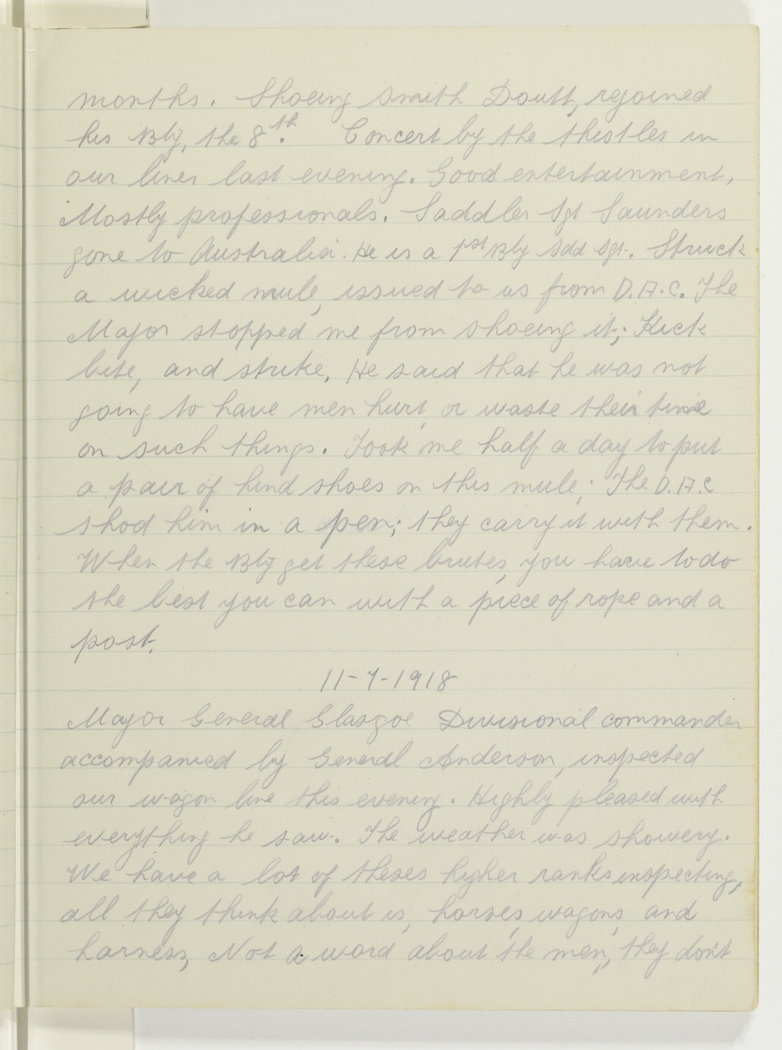 months. Shoeing Smith Doutt, rejoined
his Bty, the 8th. Concert by the Thistles in
our lines last evening. Good entertainment,
Mostly professionals. Saddler Sgt Saunders
gone to Australia. He is a 1st Bty Sdd Sgt. Struck
a wicked mule, issued to us from D.A.C. The
Major stopped me from shoeing it; Kick
bite, and strike. He said that he was not
going to have men hurt, or waste their time
on such things. Took me half a day to put
a pair of hind shoes on this mule; The D.A.C
shod him in a pen; they carry it with them.
When the Bty get these brutes, you have to do
the best you can with a piece of rope and a
post.
11-7-1918
Major General Glasgoe Divisional commander
accompanied by General Anderson, inspected
our wagon line this evening. Highly pleased with
everything he saw. The weather was showery.
We have a lot of theses higher ranks inspecting,
all they think about is, horses, wagons, and
harness, Not a word about the men, they don't